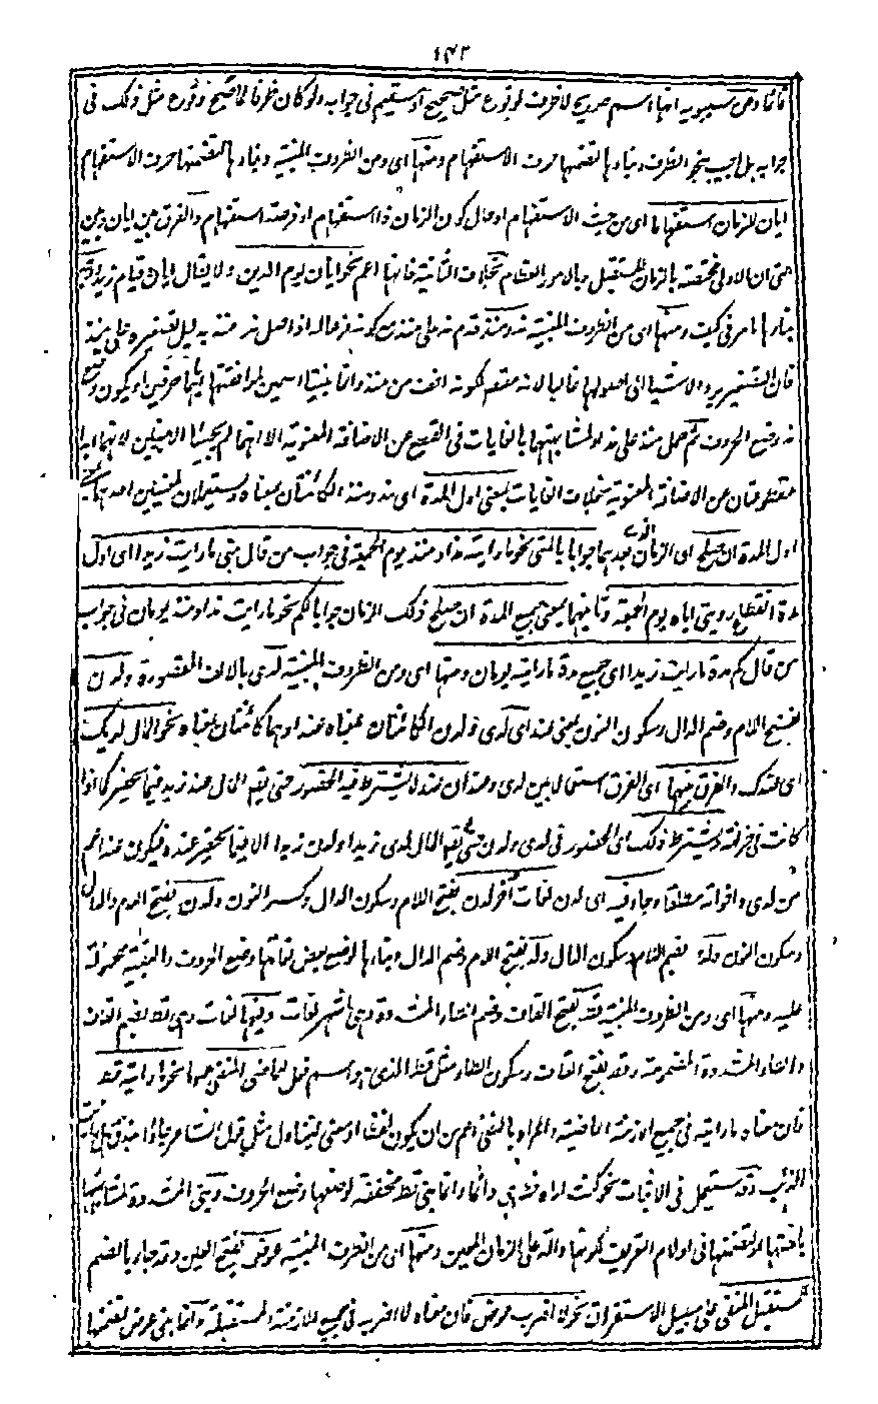 ١٤٢
وعن سيبويه انها اسم صريح لا ظرف لوقوع مثل صحيح او سقيم فى جوابه ولو كان ظرفا لما صح وقوع مثل ذلك فى
جوابه بل اجيب بنحو الظرف وبناؤها لتضمنها حرف الاستفهام ومنها اى ومن الظروف المبنية وبناؤها لتضمنها حرف الاستفهام
ايان للزمان استفهاما اى من حيث الاستفهام او حال كون الزمان ذا استفهام او فرصة استفهام والفرق بين ايان وبين
متى ان الاولى مختصة بالزمان المستقبل وبالامور العظام بخلاف الثانية فانها اعم نحو ايان يوم الدين ولا يقال ايان قيام زيد
بناؤها مامر فى كيف ومنها اى من الظروف المبنية مذ ومنذ قدم مذ على منذ مع كونه فرعا له اذ اصل مذ منذ بدليل تصغيره على منيذ
فان التصغير يرد الاشياء الى اصولها غالبا لانه مقصم لكونه اخف من منذ وانما بنيتا اسمين لموافقتها اياهما حرفين او يكون وضع
مذ وضع الحروف ثم حمل منذ على مذ او لمشابهتها بالغايات فى القطع عن الاضافة المعنوية الا انها لم يجيئا الا مبنيين لانهما ابدا
مقطوعتان عن الاضافة المعنوية بخلاف الغايات بمعنى اول المدة اى مذ ومنذ الكائنتان بمعناه ويستعملان لمعنيين احدهما
اول المدة ان صلح اى الزمان الذى بعدهما جوابا بالمتى نحو ما رايته مذ او منذ يوم الجمعة فى جواب من قال متى ما رايت زيدا اى اول
مدة انقطاع رويتى اياه يوم الجمعة وثانيهما بمعنى جميع المدة ان صلح ذلك الزمان جوابا لكم نحو ما رايت مذ او منذ يومان فى جواب
من قال كم مدة ما رايت زيدا اى جميع مدة ما رايته يومان ومنها اى ومن الظروف المبنية لدى بالالف المقصورة ولدن
بفتح اللام وضم الدال وسكون النون بمعنى عند اى لدى ولدن الكائنتان بمعناه عند او هما كائنتان بمعناه نحو المال لديك
اى عندك والفرق بينها اى الفرق استعمالا بين لدى وعند ان عند لا يشترط فيه الحضور حتى يقم المال عند زيد فيما يحضر كما اذا
كانت فى خزانته ويشترط ذلك اى الحضور فى لدى ولدن حتى لم يقم المال لدى زيدا ولدن زيدا الا فيما يحضر عنده فيكون عند اعم
من لدى واخواته مطلقا وجاء فيه اى لدن لغات أخر لدن بفتح اللام وسكون الدال وكسر النون ولدن بفتح اللام والدال
وسكون النون ولد بضم اللام وسكون الدال ولد بفتح اللام وضم الدال وبناؤها لوضع بعض لغاتها وضع الحروف والبقية محمولة
عليه ومنها اى ومن الظروف المبنية قط بفتح القاف وضم الطاء المشددة وهى اشهر لغات وفيها لغات وهى قط بضم القاف
والطاء المشددة المضمومة وقط بفتح القاف وسكون الطاء مثل قط الذى هو اسم فعل للماضى المنفى عموما نحو ما رايته قط
فان معناه ما رايته فى جميع الازمنة الماضية والمراد بالنفى اعم من ان يكون لفظا او معنى ليتناول مثل قول الشاعر جاؤا بمذق هل رايت
الذئب قط وقد يستعمل فى الاثبات نحو كنت اراه قط اى دائما وانما بنى قط مخففة لوضعها وضع الحروف وبنى المشددة لمشابهتها
باختها او لتضمنها فى او لام التعريف لكونها دالة على الزمان المعين ومنها اى من الظرف المبنية عوض بفتح العين وقد جاء بالضم
للمستقبل المنفى على سبيل الاستغراق نحو لا اضرب عوض فان معناه لا اضرب فى جميع الازمنة المستقبلة وانما بنى عوض لتضمنها